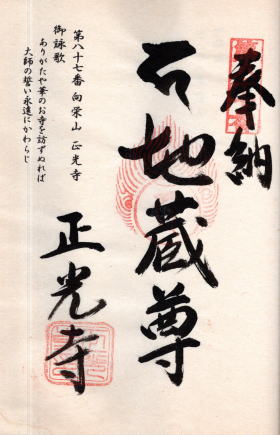 奉納
石地蔵尊
正光寺
第八十七番 向栄山 正光寺
御詠歌
ありがたや華のお寺を訪ずぬれば
大師の誓い永遠にかわらじ